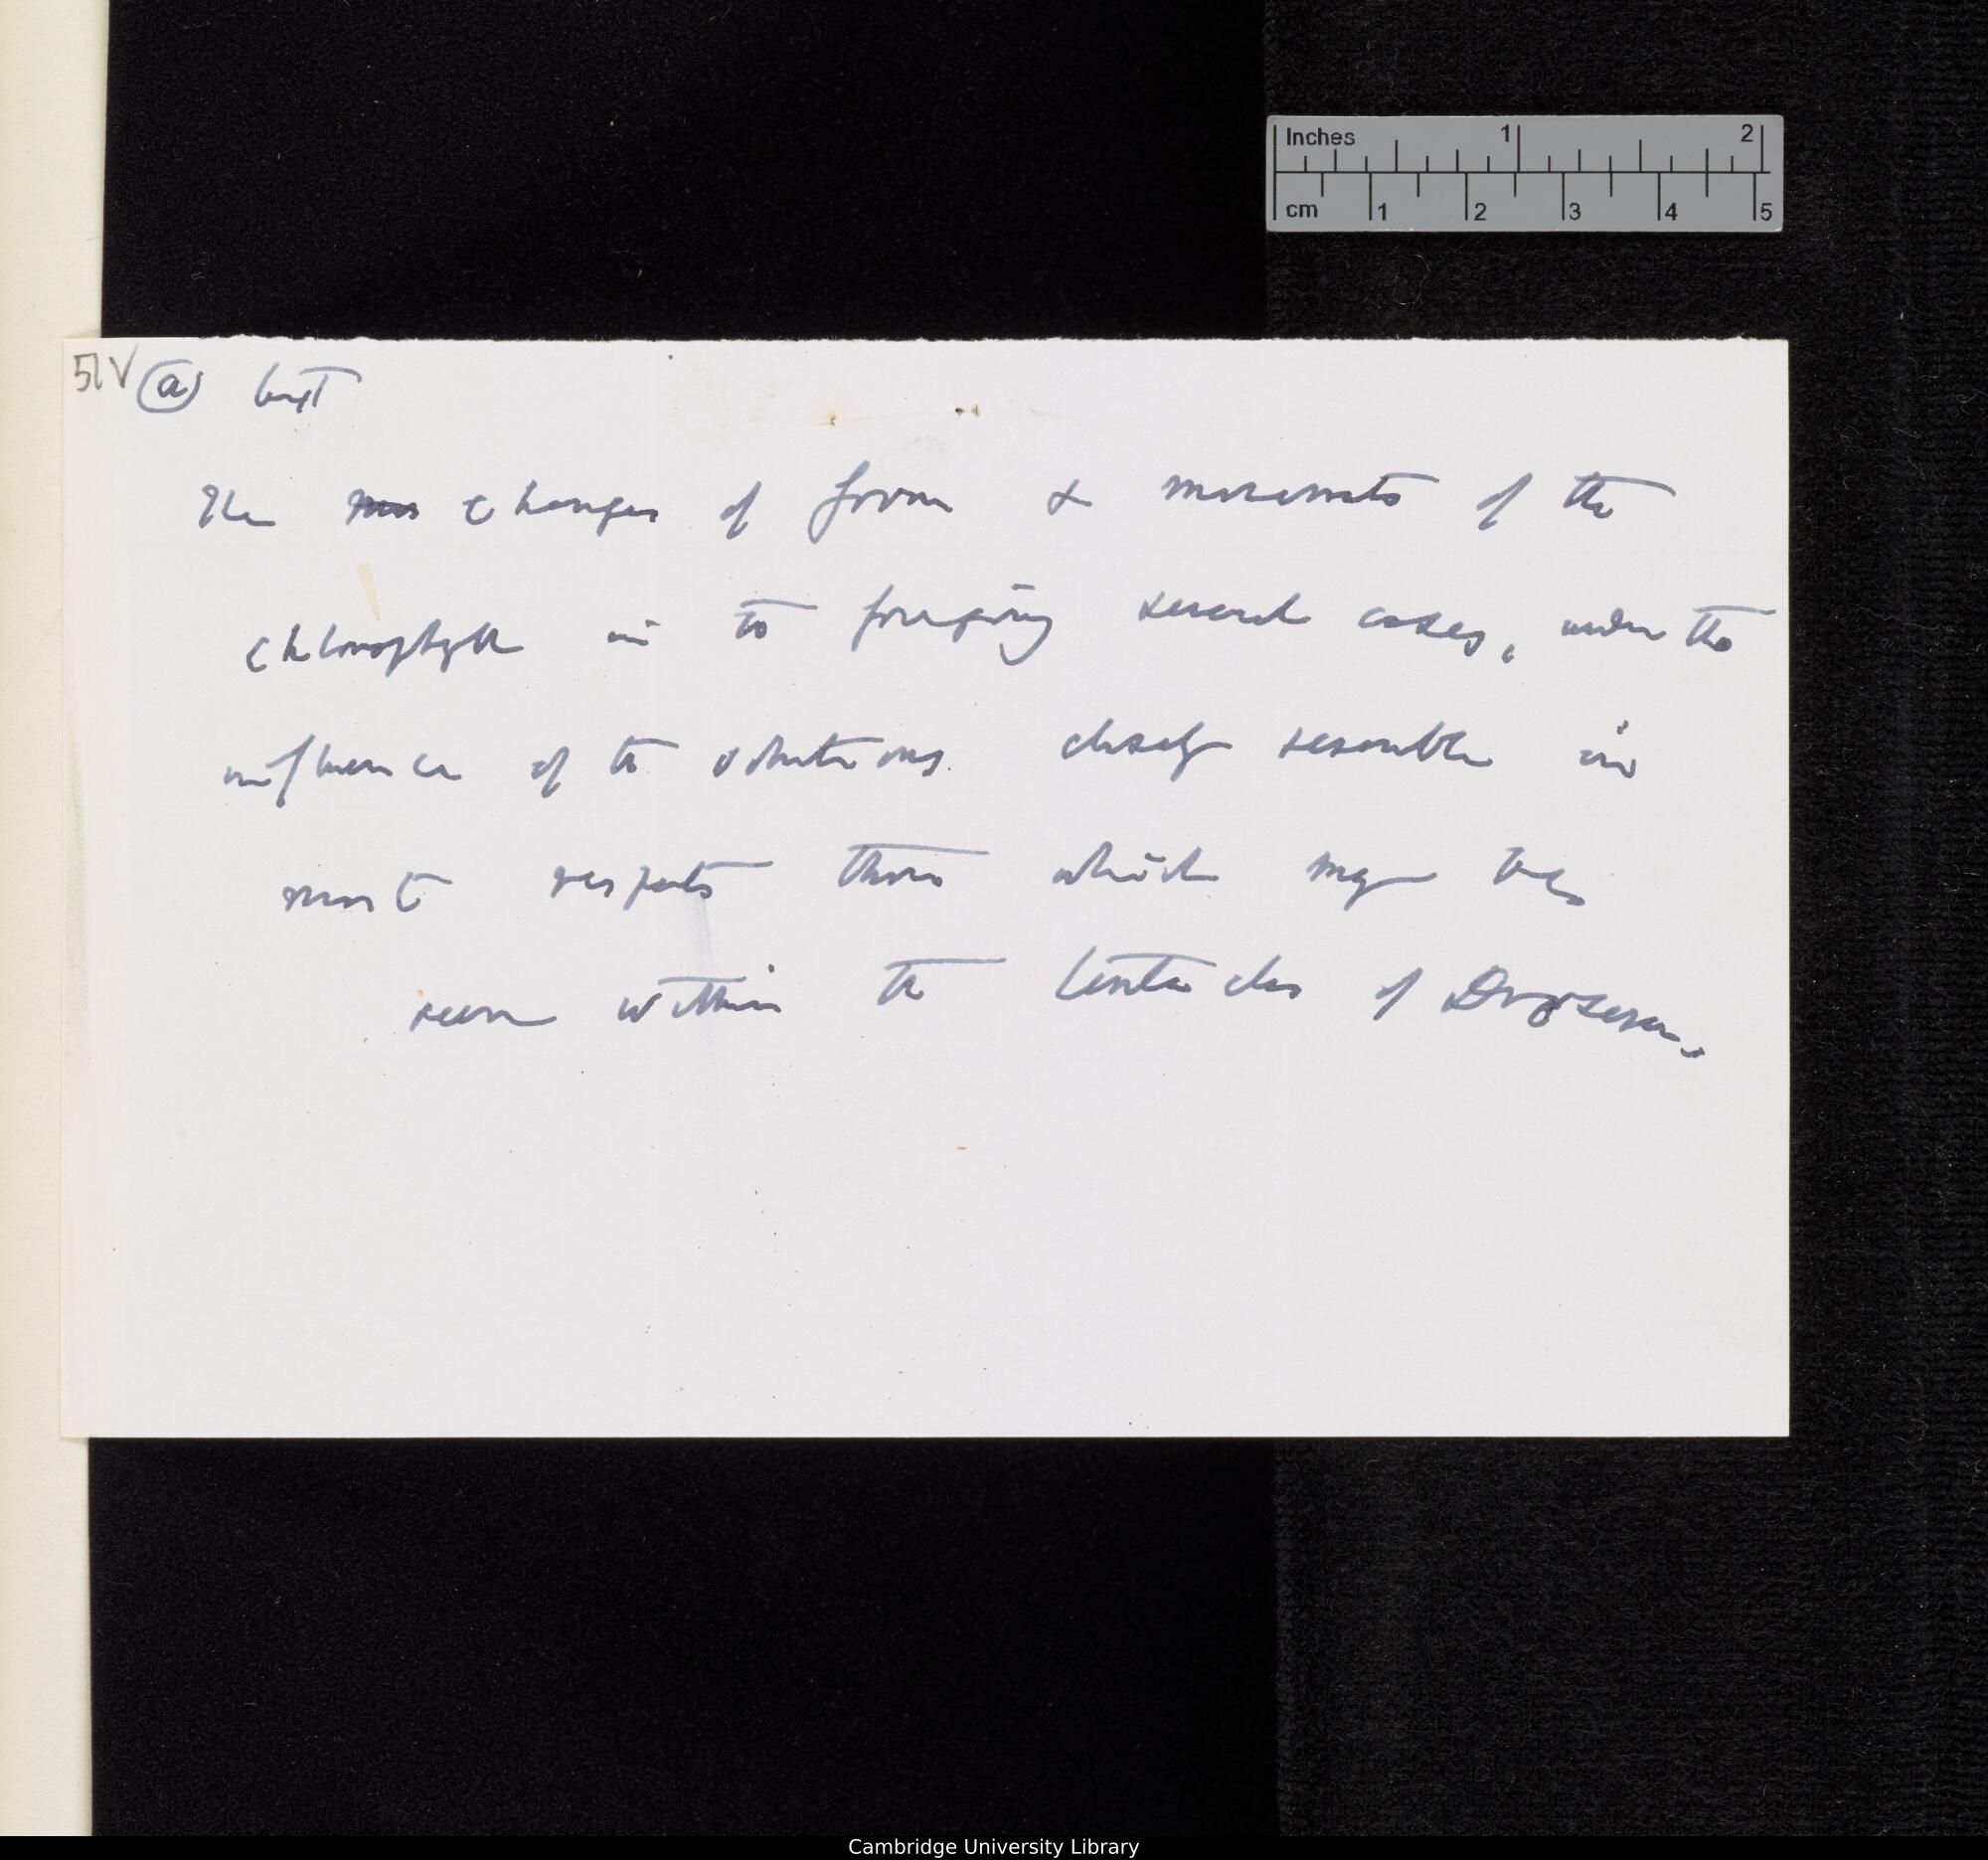 Inches 1 2
cm 1 2 3 4 5
51V (a) text
The changes of form & movements of the
chlorophyll in to foregoing several cases, under the
influence of the solutions. closely resemble in
most respects those which may be
seen within the tentacles of Drosera.
Cambridge University Library